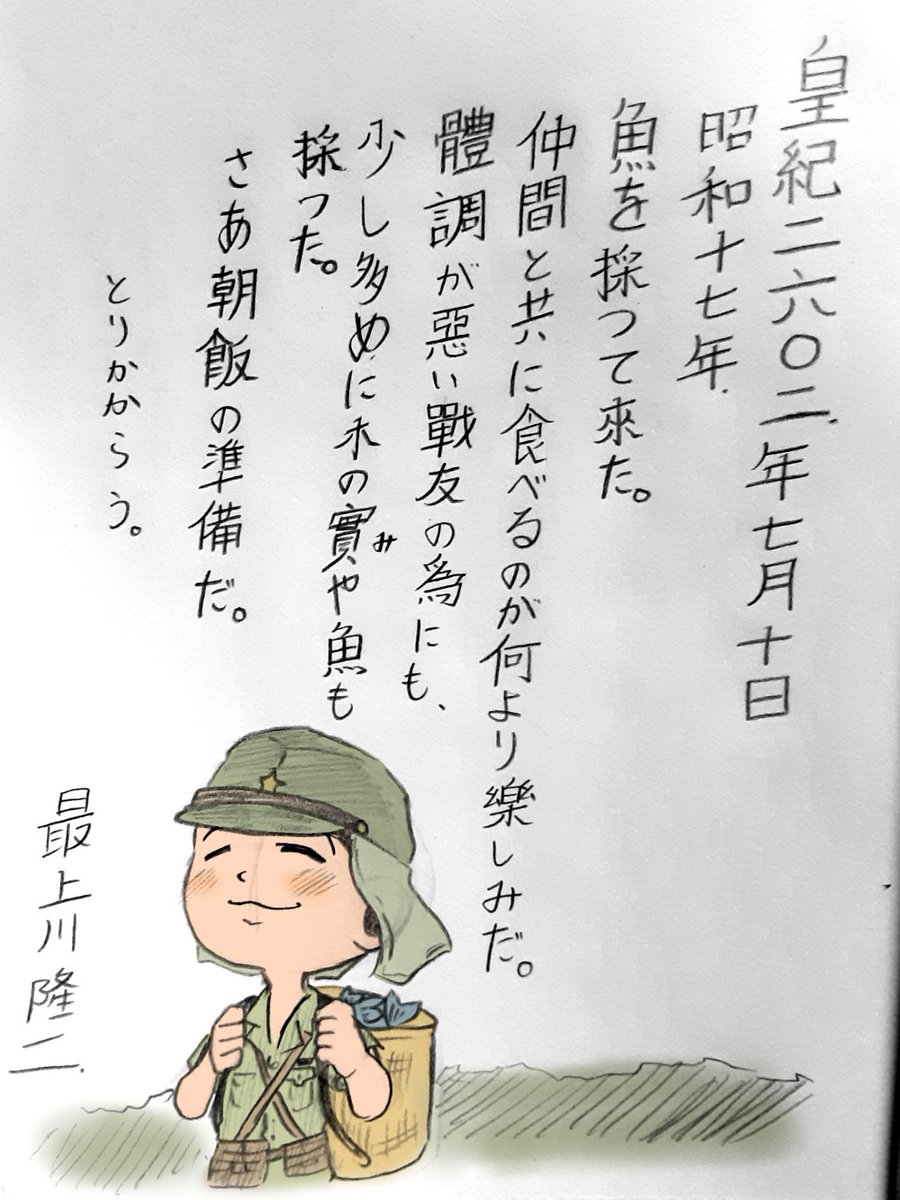 皇紀二六〇二年七月十日
昭和十七年
魚を採つて來た。
仲間と共に食べるのが何より樂しみだ。
體調が惡い戰友の爲にも、
少し多めに木の實や魚も
み
採つた。
さあ朝飯の準備だ。
とりかからう。
最上川隆二